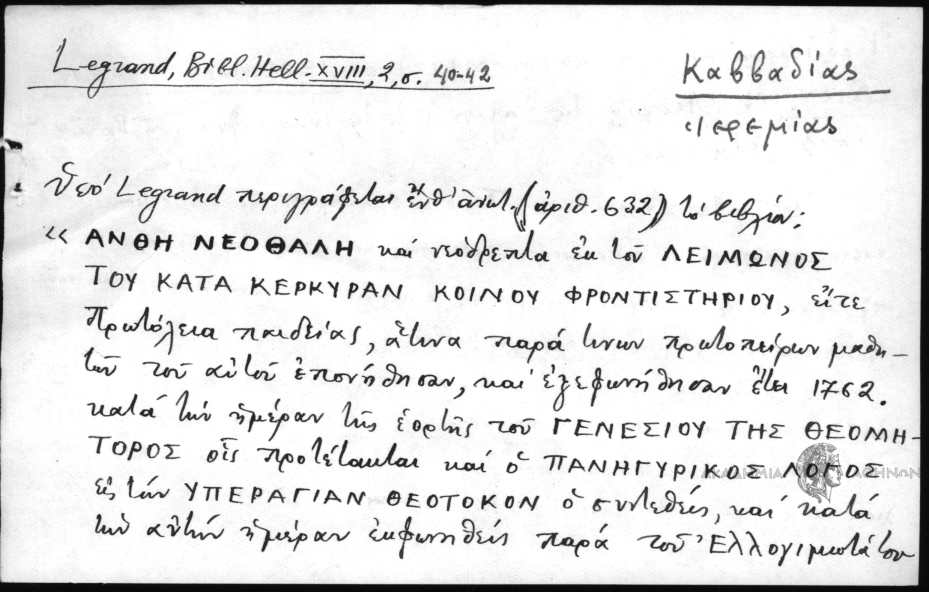 Legrand, Bibl. Hell. XVIII, 2, σ. 40-42
Καββαδίας
Ἱερεμίας
Ὑπό Legrand περιγράφεται ἔνθ' ἀνωτ. (ἀριθ. 632) τό βιβλίον:
« ΑΝΘΗ ΝΕΟΘΑΛΗ καί νεόδρεπτα ἐκ τοῦ ΛΕΙΜΩΝΟΣ
ΤΟΥ ΚΑΤΑ ΚΕΡΚΥΡΑΝ ΚΟΙΝΟΥ ΦΡΟΝΤΙΣΤΗΡΙΟΥ, εἴτε
Πρωτόλεια παιδείας, ἅτινα παρά τινων πρωτοπείρων μαθη-
τῶν τοῦ αὐτοῦ ἐπονήθησαν, καί ἐξεφωνήθησαν ἔτει 1762.
κατά τήν ἡμέραν τῆς ἑορτῆς τοῦ ΓΕΝΕΣΙΟΥ ΤΗΣ ΘΕΟΜΗ-
ΤΟΡΟΣ οἷς προτέτακται καί ὁ ΠΑΝΗΓΥΡΙΚΟΣ ΛΟΓΟΣ
ΑΚΑΔΗΜΙΑ ΑΘΗΝΩΝ
εἰς τήν ΥΠΕΡΑΓΙΑΝ ΘΕΟΤΟΚΟΝ ὁ συντεθείς, καί κατά
τήν αὐτήν ἡμέραν ἐκφωνηθείς παρά τοῦ Ἐλλογιμωτάτου